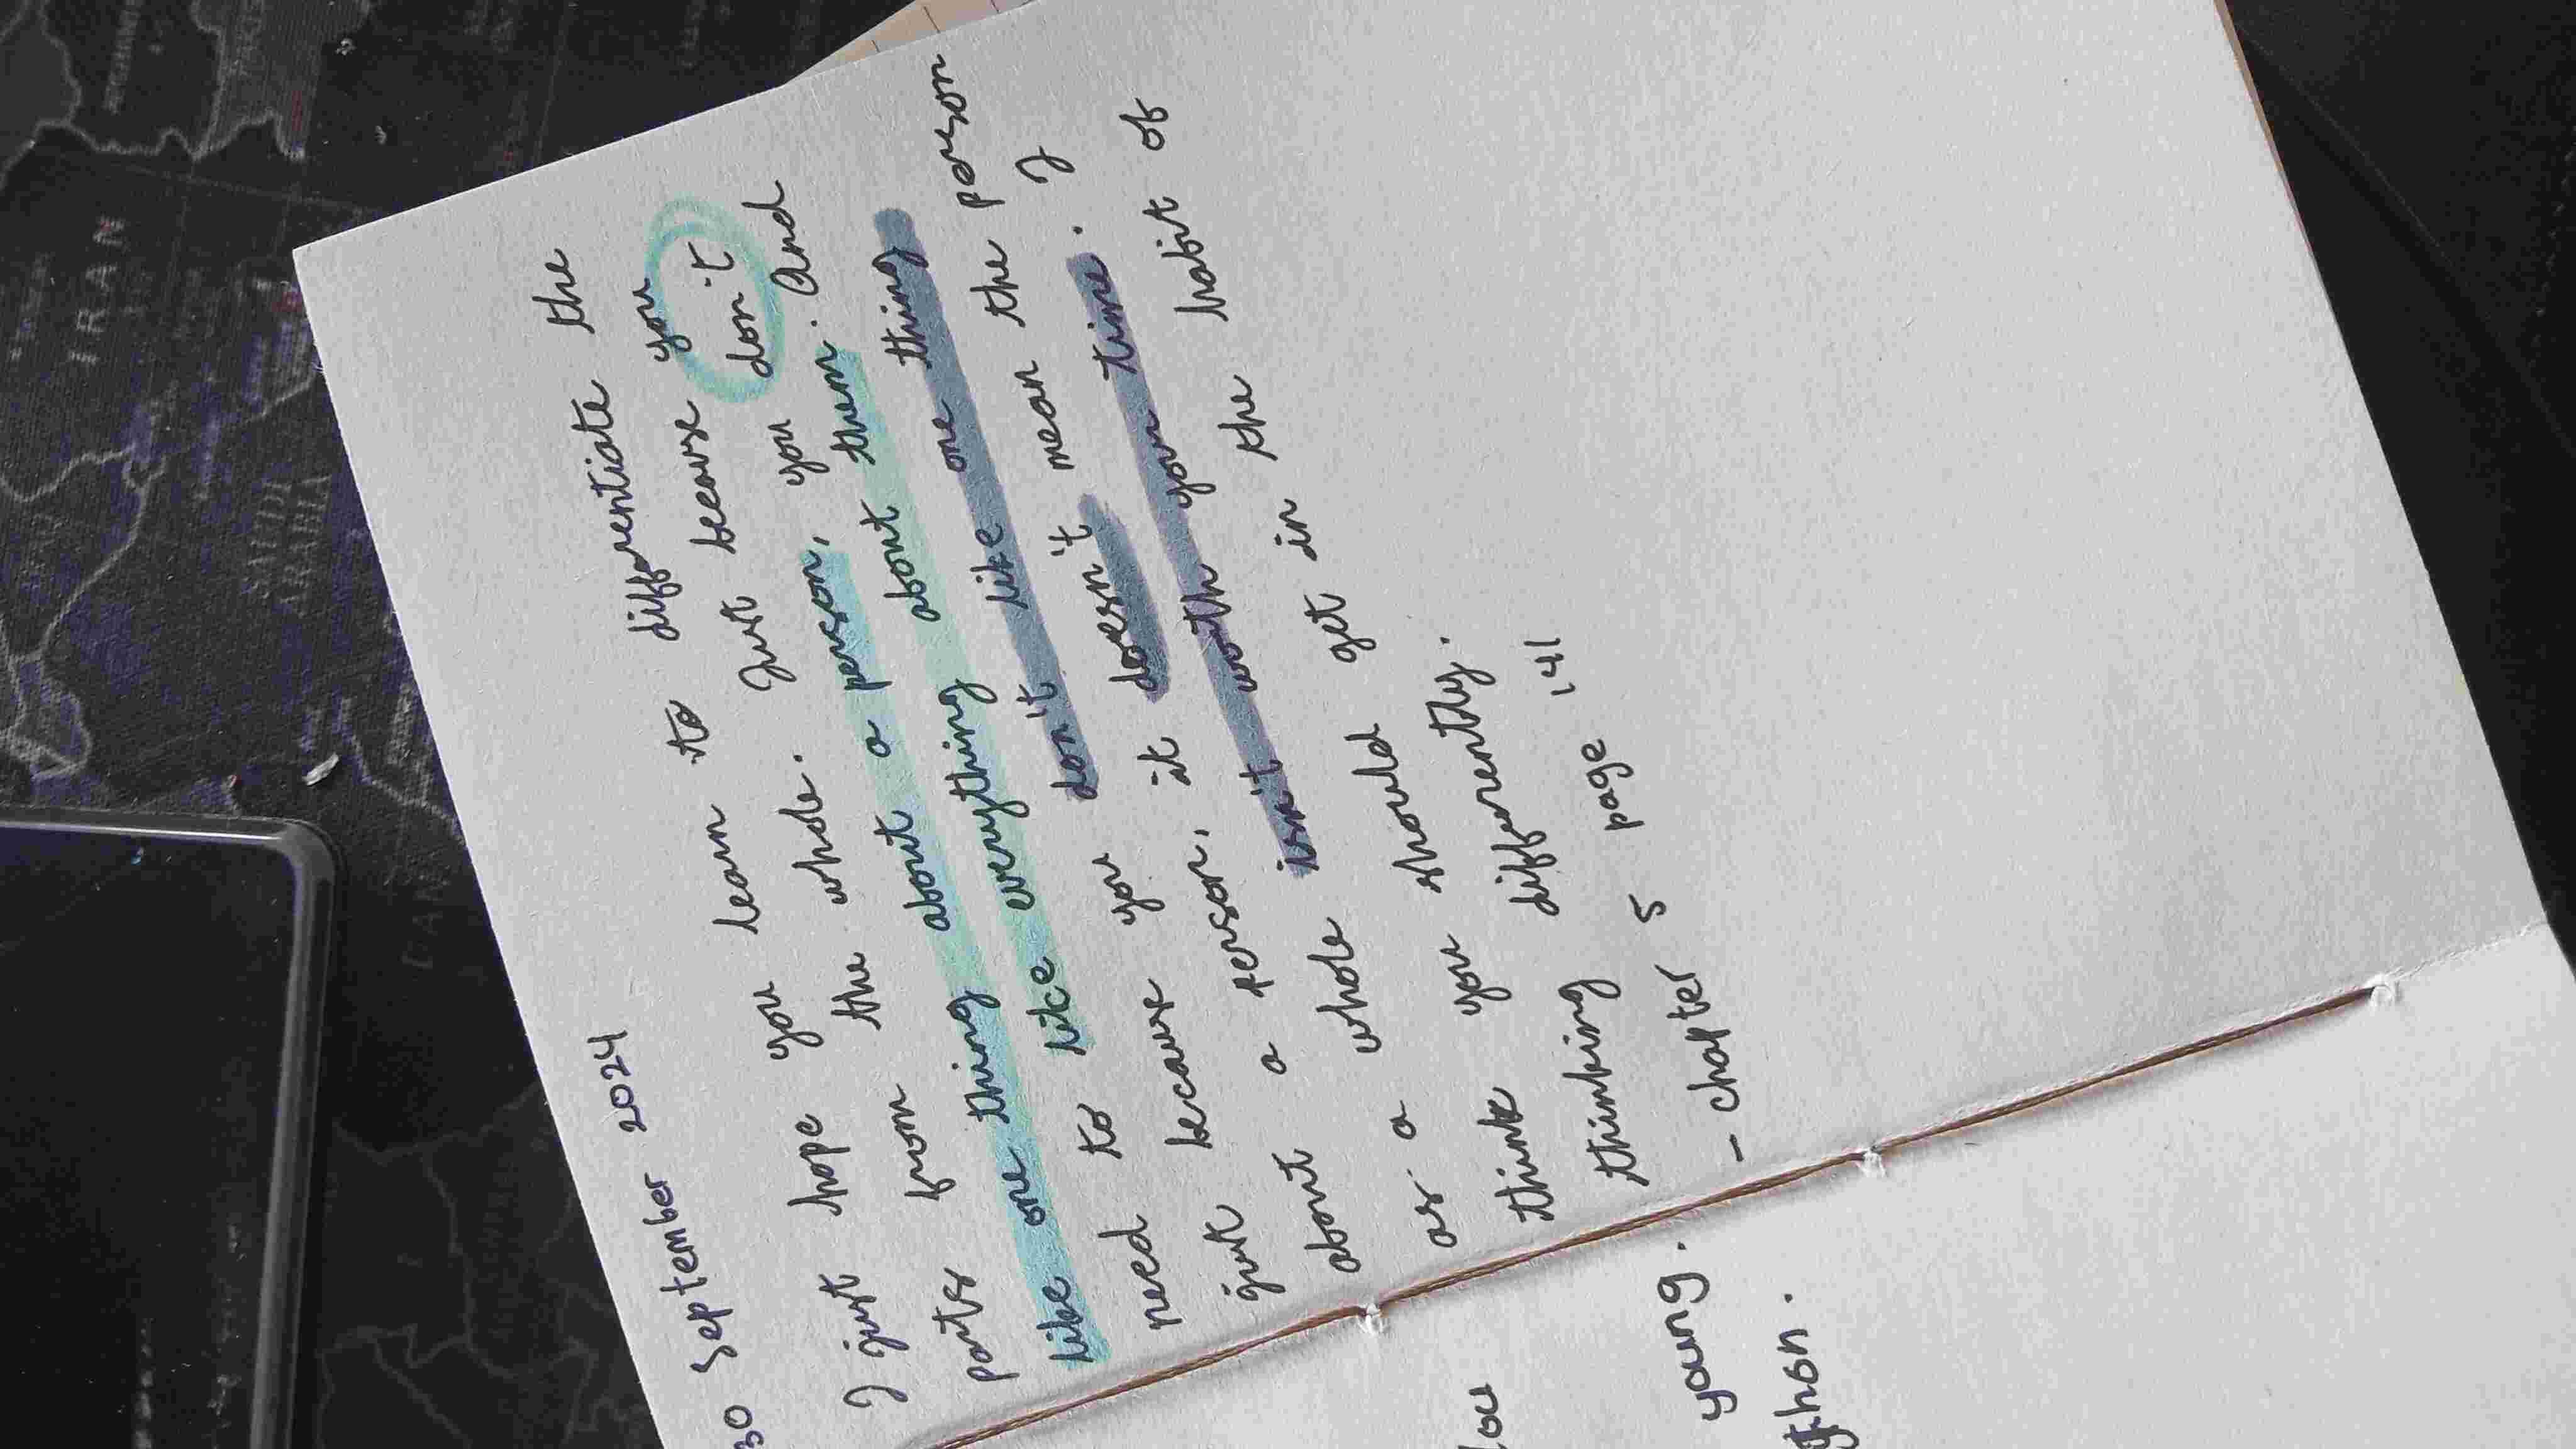 30 September 2024
I just hope you learn to differentiate the
parts from the whole. Just because you
like one thing about a person, you don't
need to like everything about them. And
just because you don't like one thing
about a person, it doesn't mean the person
as a whole isn't worth your time. I
think you should get in the habit of
thinking differently.
- chapter 5 page 141
you
young.
ghson.
IRAN
SAUDI
ARABIA